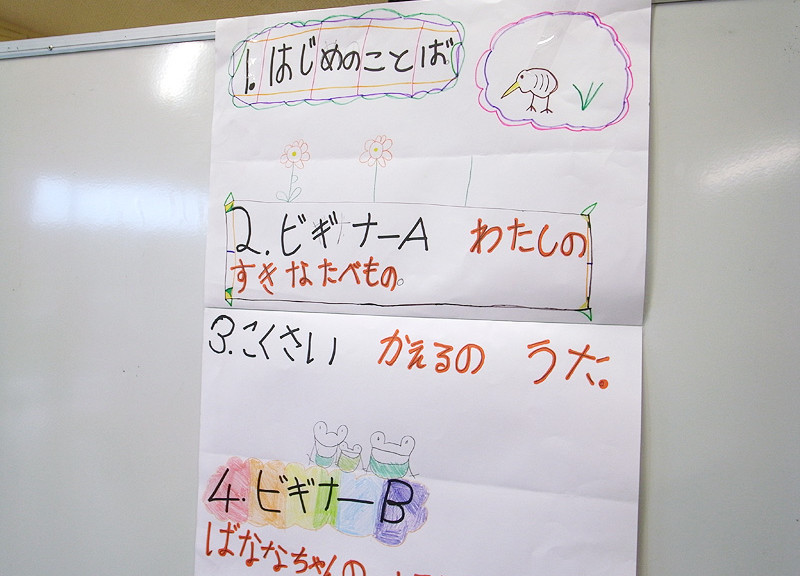 1. はじめのことば
2. ビギナーA わたしの
すきなたべもの。
3. こくさい かえるの うた。
4. ビギナーB
ばななちゃんの